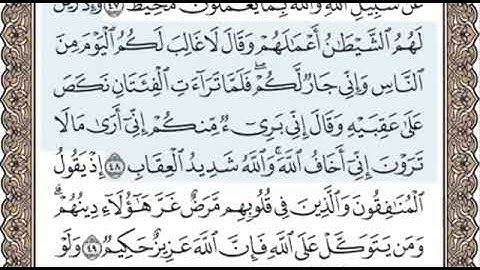 عَن سَبِيلِ ٱللَّهِ وَٱللَّهُ بِمَا يَعْمَلُونَ مُحِيطٌ ٤٧ وَإِذْ زَيَّنَ
لَهُمُ ٱلشَّيْطَٰنُ أَعْمَٰلَهُمْ وَقَالَ لَا غَالِبَ لَكُمُ ٱلْيَوْمَ مِنَ
ٱلنَّاسِ وَإِنِّى جَارٌ لَّكُمْ ۖ فَلَمَّا تَرَآءَتِ ٱلْفِئَتَانِ نَكَصَ
عَلَىٰ عَقِبَيْهِ وَقَالَ إِنِّى بَرِىٓءٌ مِّنكُمْ إِنِّىٓ أَرَىٰ مَا لَا
تَرَوْنَ إِنِّىٓ أَخَافُ ٱللَّهَ ۚ وَٱللَّهُ شَدِيدُ ٱلْعِقَابِ ٤٨ إِذْ يَقُولُ
ٱلْمُنَٰفِقُونَ وَٱلَّذِينَ فِى قُلُوبِهِم مَّرَضٌ غَرَّ هَٰٓؤُلَآءِ دِينُهُمْ ۗ
وَمَن يَتَوَكَّلْ عَلَى ٱللَّهِ فَإِنَّ ٱللَّهَ عَزِيزٌ حَكِيمٌ ٤٩ وَلَوْ